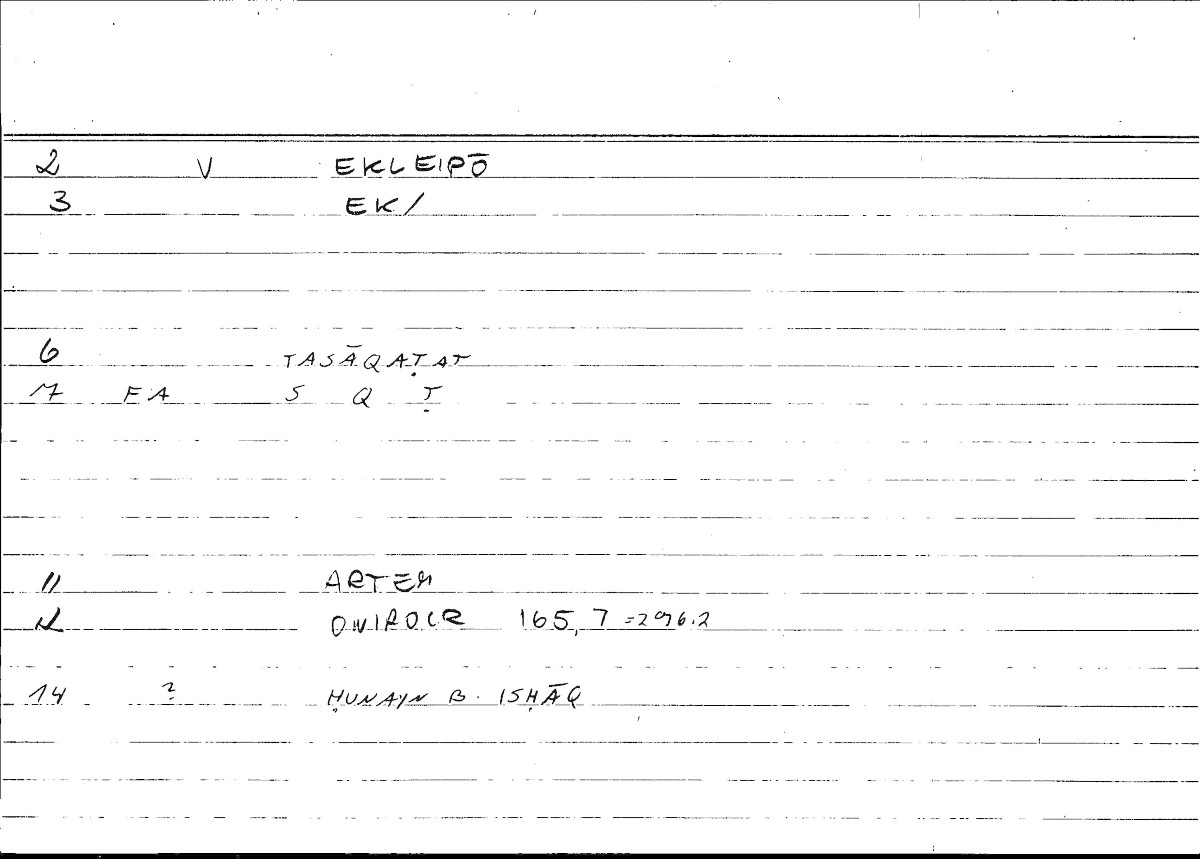 2 V EKLEIPŌ
3 EK/
6 TASĀQAṬAT
7 FA S Q Ṭ
11 ARTEM
12 ONIROCR 165,7 =296.2
14 ? ḤUNAYN B. ISḤĀQ